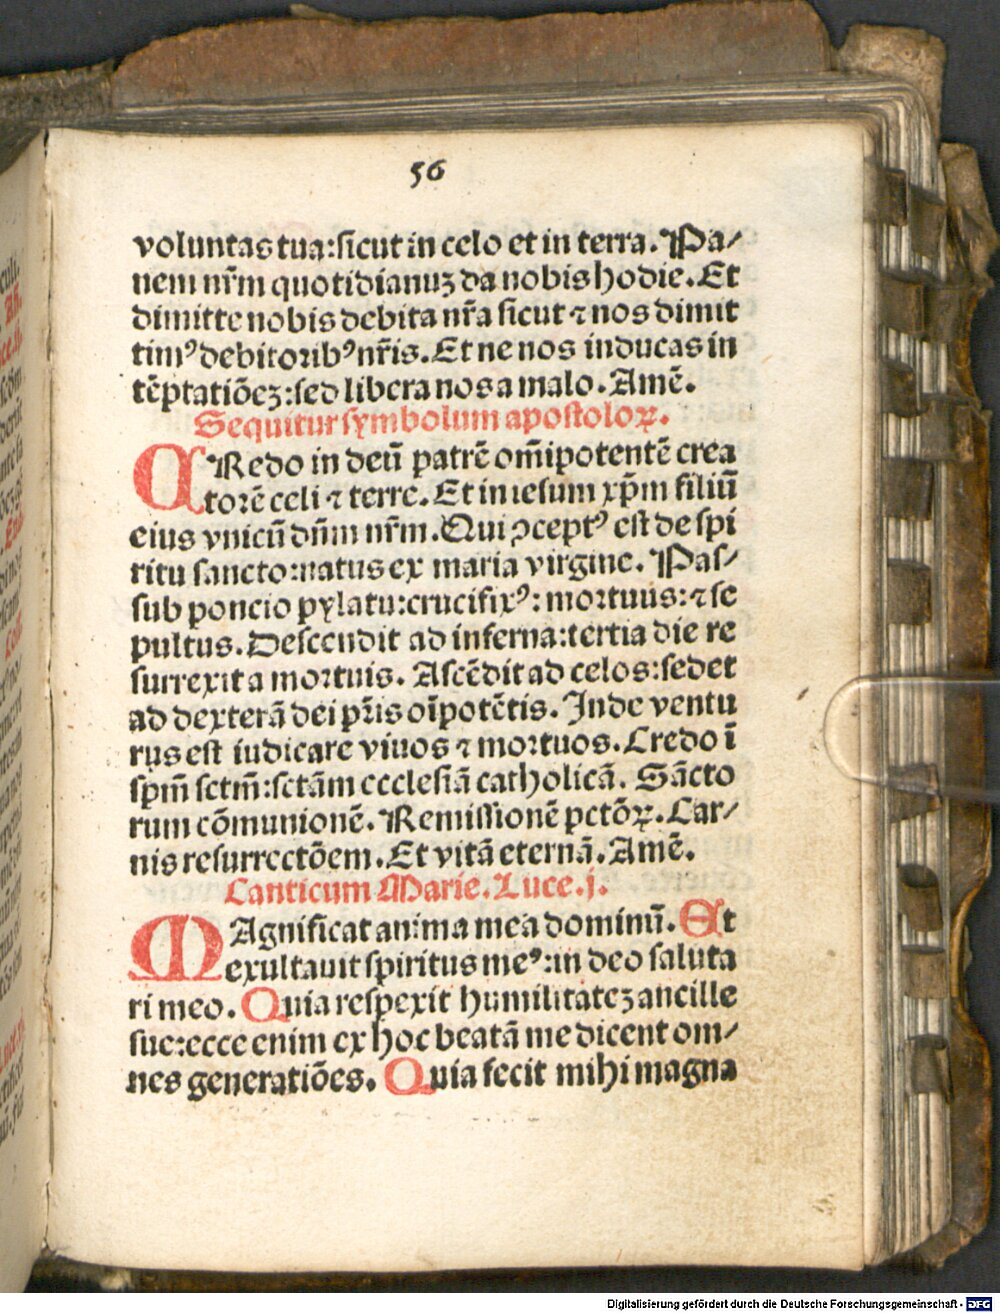 56
voluntas tua:sicut in celo et in terra. Pa/
nem nr̃m quotidianuꝫ da nobis hodie. Et
dimitte nobis debita nr̃a sicut ⁊ nos dimit
timꝰ debitoribꝰ nr̃is. Et ne nos inducas in
tẽptatiõeꝫ:sed libera nos a malo. Amẽ.
Sequitur symbolum apostoloꝝ.
CRedo in deũ patrẽ om̃ipotentẽ crea
torẽ celi ⁊ terre. Et in iesum xp̃m filiũ
eius vnicũ dñm nr̃m. Qui ↄceptꝰ est de spi
ritu sancto:natus ex maria virgine. Pas/
sub poncio pylatu:crucifixꝰ: mortuus:⁊ se
pultus. Descendit ad inferna:tertia die re
surrexit a mortuis. Ascẽdit ad celos:sedet
ad dexterã dei pr̃is oĩpotẽtis. Inde ventu
rus est iudicare viuos ⁊ mortuos. Credo ĩ
spm̃ sctm̃:sctãm ecclesiã catholicã. Sãcto
rum cõmunionẽ. Remissionẽ pctõꝝ. Car/
nis resurrectõem. Et vitã eternã. Amẽ.
Canticum Marie. Luce. j.
MAgnificat anima mea dominũ. Et
exultauit spiritus meꝰ:in deo saluta
ri meo. Quia respexit humilitateꝫ ancille
sue:ecce enim ex hoc beatã me dicent om/
nes generatiões. Quia fecit mihi magna
Digitalisierung gefördert durch die Deutsche Forschungsgemeinschaft - DFG